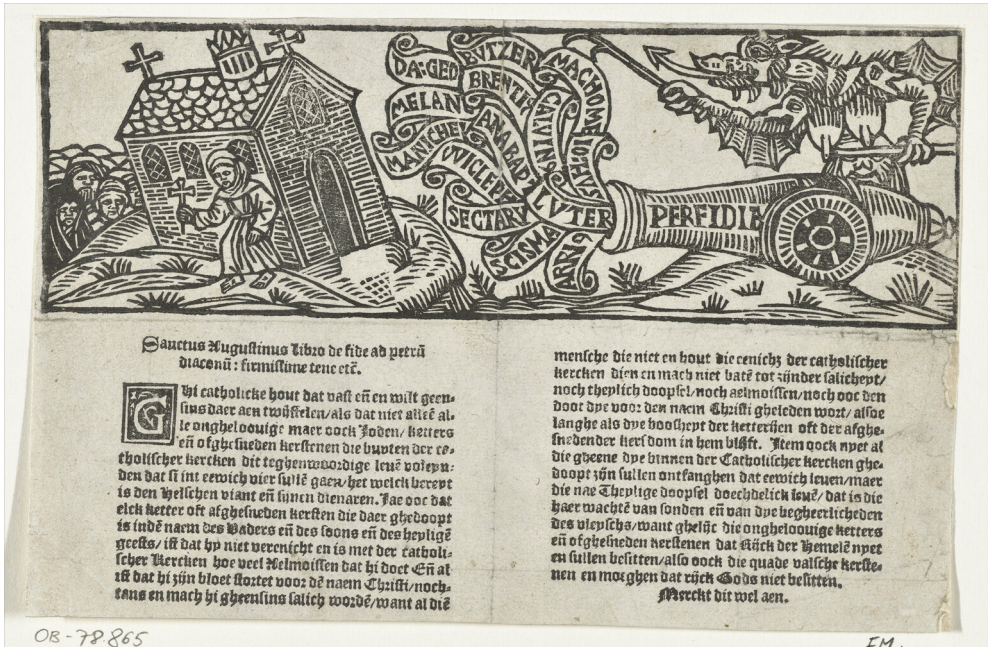 DA·GEO
BVTZER
MACHOME
BRENTI
MELAN
CALVIN
IOHVS
MANICHEI
ANABAPT
WICLEF
SECTARI
LVTER
SCISMA
ARRI9
PERFIDIE
Sanctus Augustinus Libro de fide ad petrū
diaconū: firmissime tene etc̄.
Ghi catholicke hout dat vast eñ en wilt geen-
sins daer aen twijffelen/als dat niet alleē al-
le ongheloouige maer oock Joden/ ketters
eñ ofghesneden kerstenen die buyten der ca-
tholischer kercken dit teghenwoordige leuē voleyn-
den dat si int eewich vier sullē gaen/het welck bereyt
is den Helschen viant eñ sijnen dienaren. Jae ooc dat
elck ketter oft afghesneden kersten die daer ghedoopt
is indē naem des Vaders eñ des soons eñ des heyligē
geests/ ist dat hy niet verenicht en is met der catholi-
scher Kercken hoe veel Aelmoissen dat hi doet Eñ al
ist dat hi zijn bloet stortet voor dē naem Christi/noch-
tans en mach hi gheensins salich wordē/want al diē
mensche die niet en hout die eenichz der catholischer
kercken dien en mach niet batē tot zijnder salicheyt/
noch theylich doopsel/noch aelmoissen/noch ooc den
doot dye voor den naem Christi gheleden wort/ alsoe
langhe als dye boosheyt der ketterijen oft der afghe-
snedender kersdom in hem blijft. Item oock nyet al
die gheene dye binnen der Catholischer kercken ghe-
doopt zijn sullen ontfanghen dat eewich leuen/maer
die nae Theylige doopsel doechdelick leuē/ dat is die
haer wachtē van sonden eñ van dye begheerlicheden
des vleyschs/want ghelijc die ongheloouige ketters
eñ ofghesneden kerstenen dat Rijck der Hemelē nyet
en sullen besitten/also oock die quade valsche kerste-
nen en morghen dat rijck Gods niet besitten.
Merckt dit wel aen.
OB-78.865
F.M.